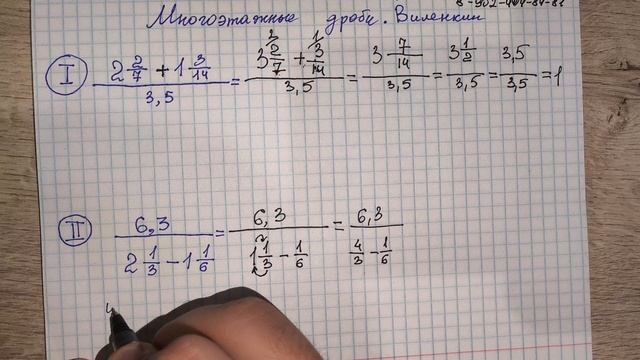 8-952-404-84-82
Многоэтажные дроби. Виленкин
I (2 2/7 + 1 3/14)/3,5 = (3 2/7 + 3/14)/3,5 = (3 7/14)/3,5 = (3 1/2)/3,5 = 3,5/3,5 = 1
II 6,3/(2 1/3 - 1 1/6) = 6,3/(1 1/3 - 1/6) = 6,3/(4/3 - 1/6)